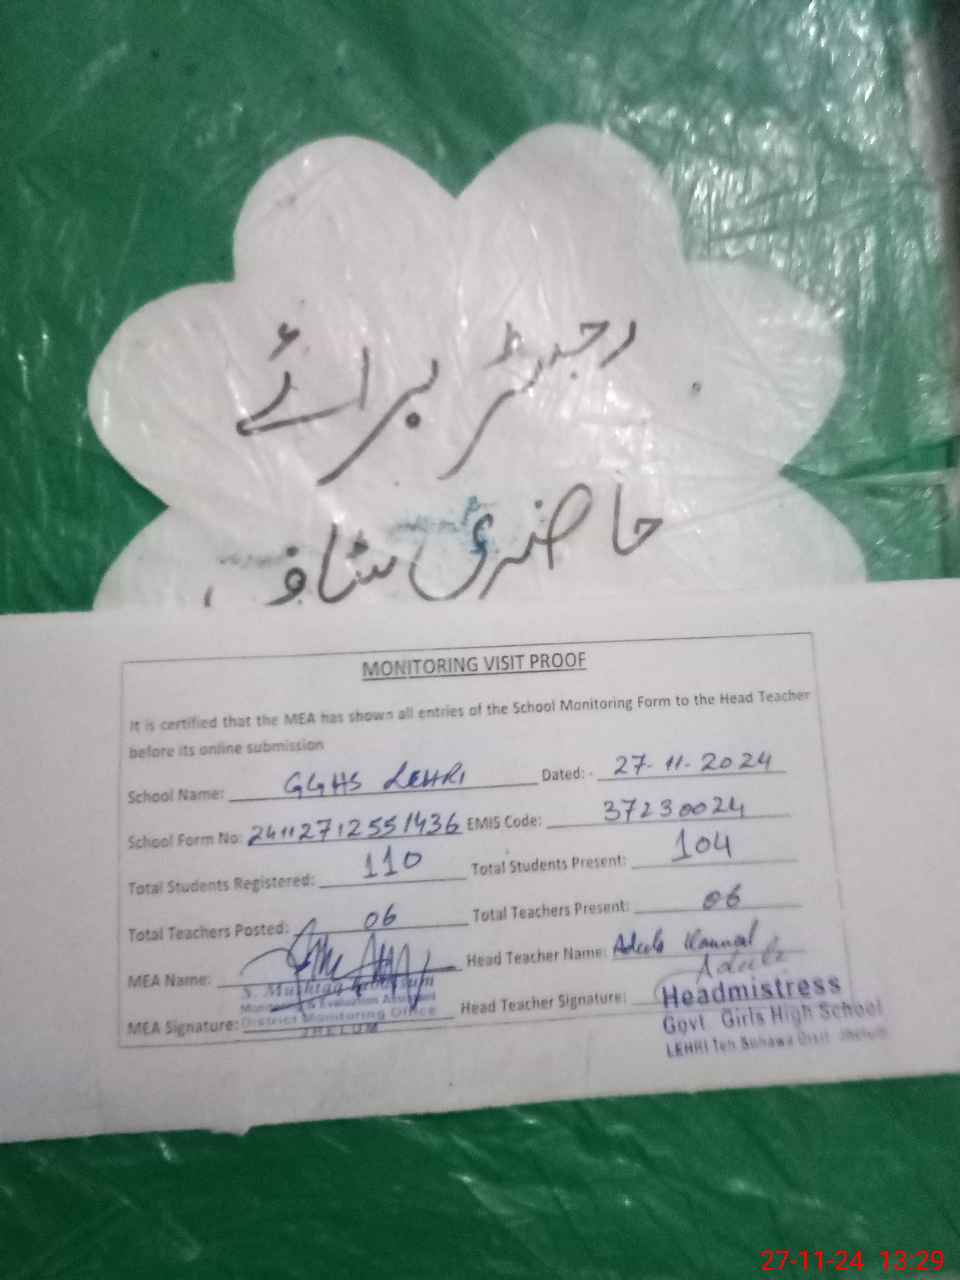 رجسٹر برائے
حاضری سٹاف
MONITORING VISIT PROOF
It is certified that the MEA has shown all entries of the School Monitoring Form to the Head Teacher
before its online submission
School Name: GGHS LEHRI Dated: - 27-11-2024
School Form No: 241127125551436 EMIS Code: 37230024
Total Students Registered: 110 Total Students Present: 104
Total Teachers Posted: 06 Total Teachers Present: 06
MEA Name: Head Teacher Name: Adeela Kanwal
S. Mushtaq
Monitoring & Evaluation Assistant
MEA Signature: District Monitoring Office Head Teacher Signature: Adeela
JHELUM
Headmistress
Govt Girls High School
LEHRI Teh Sohawa Distt Jhelum
27-11-24 13:29